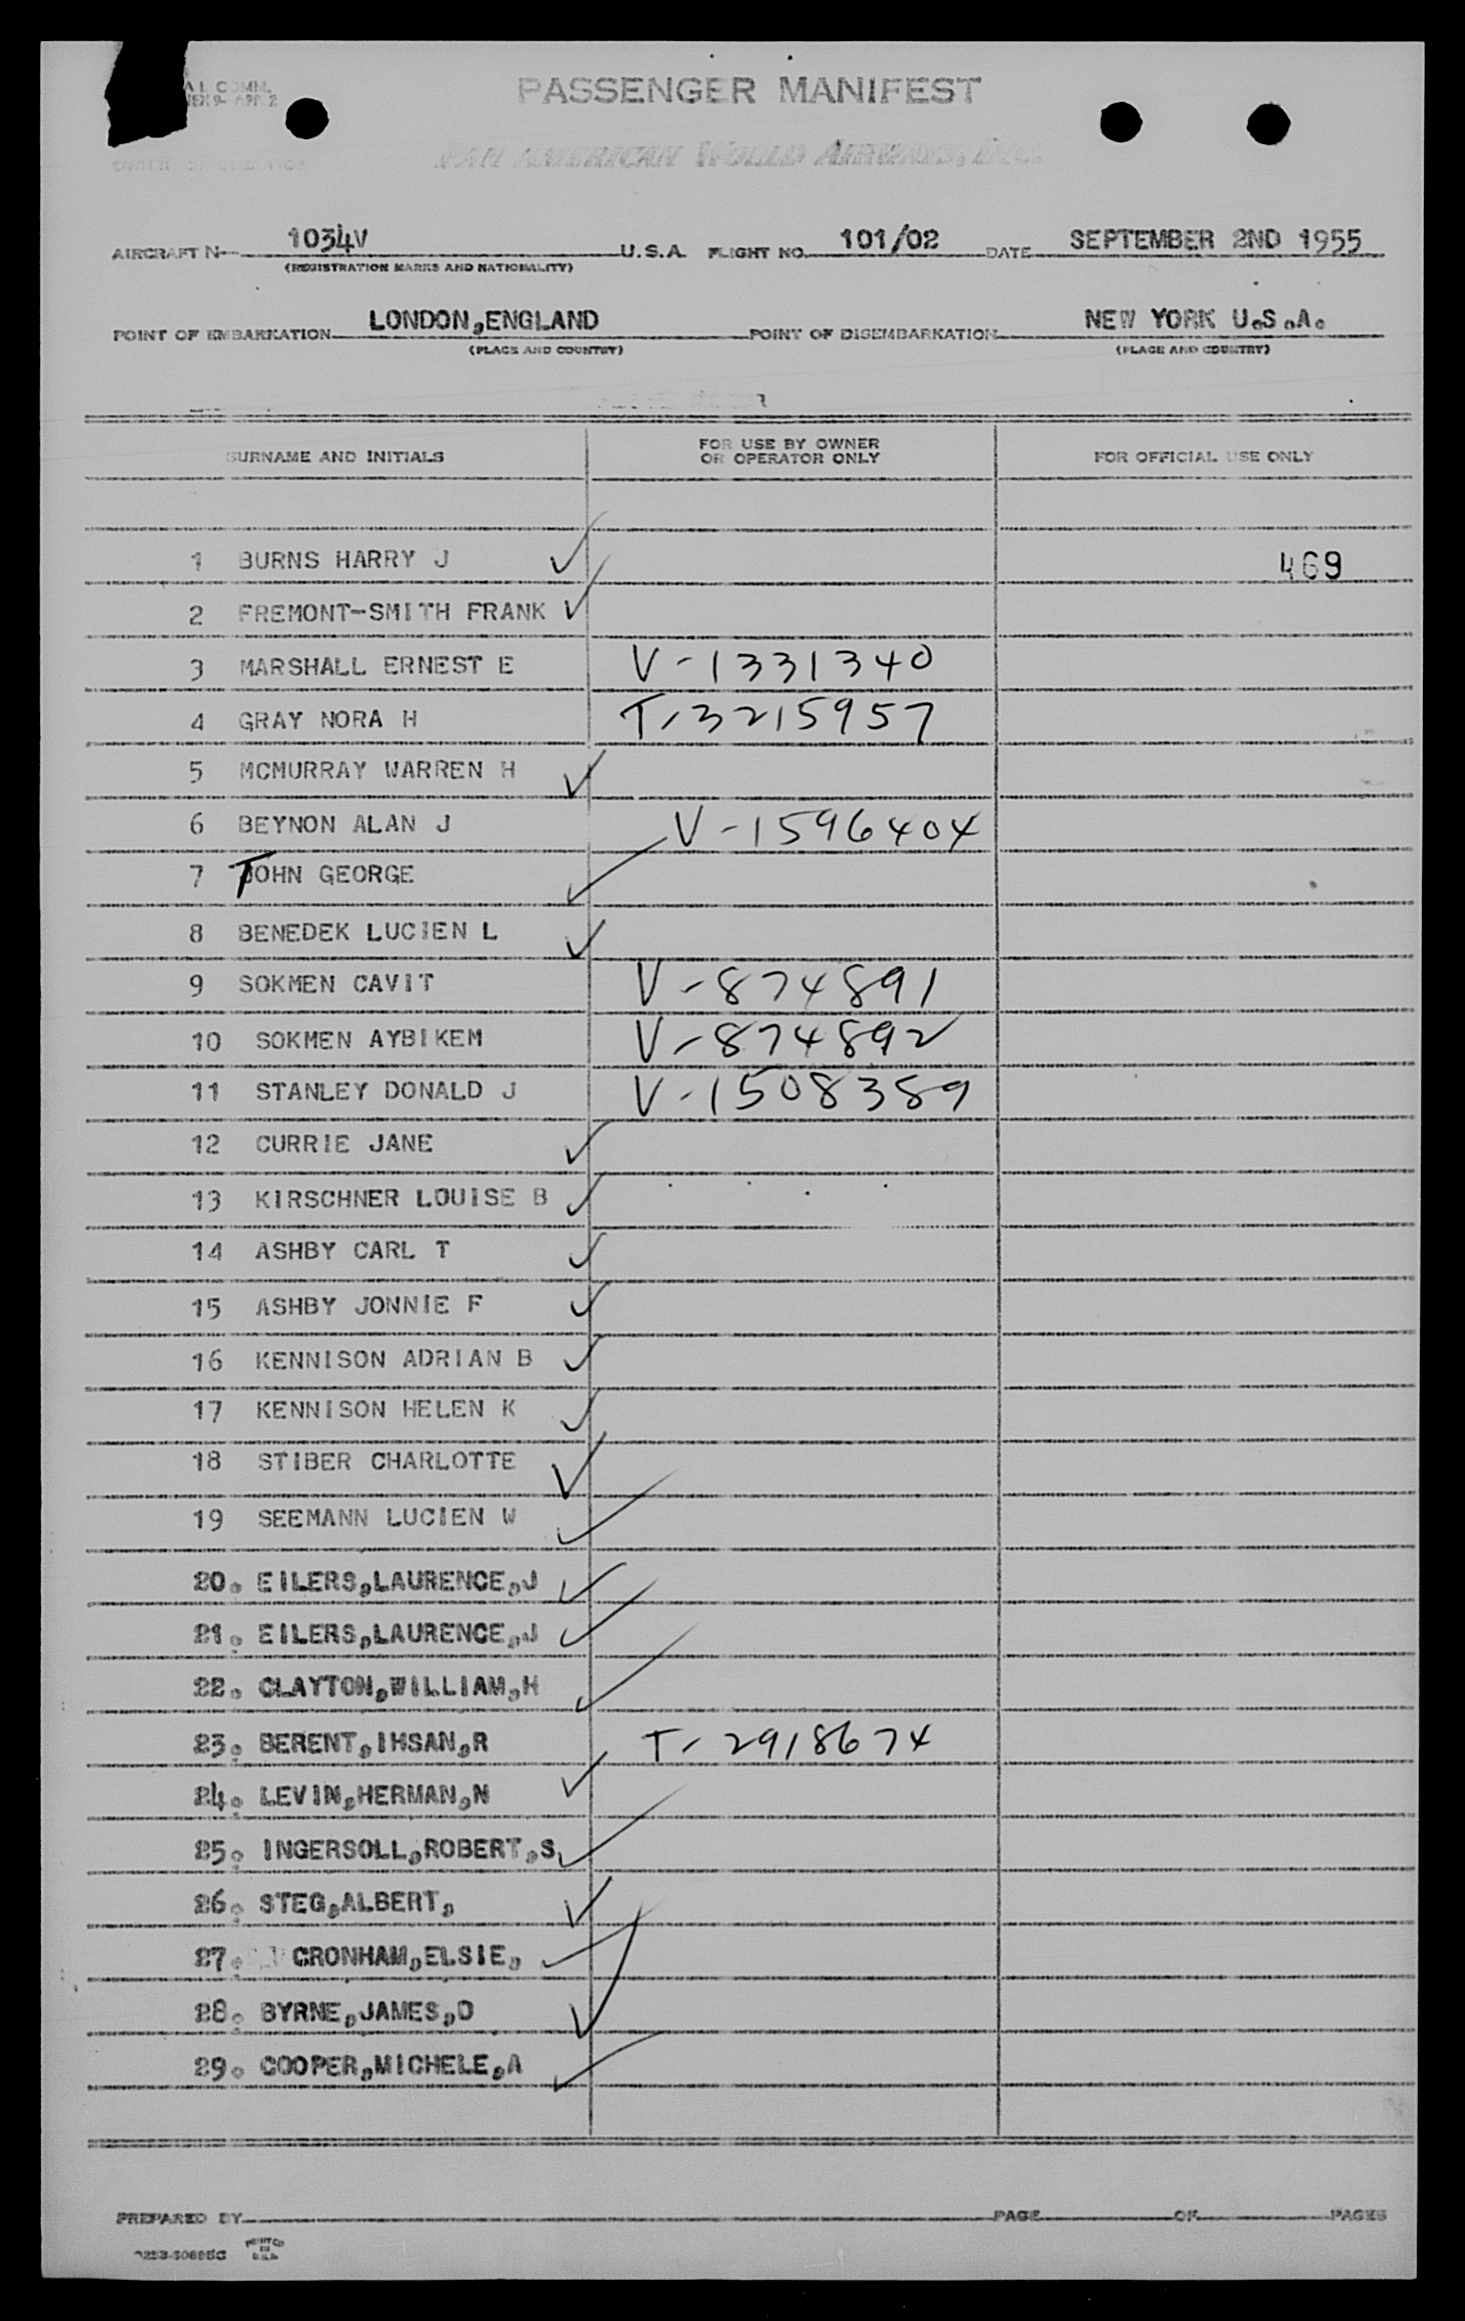 PASSENGER MANIFEST
PAN AMERICAN WORLD AIRWAYS, INC.
AIRCRAFT N- 1034V U.S.A. FLIGHT NO. 101/02 DATE SEPTEMBER 2ND 1955
(REGISTRATION MARKS AND NATIONALITY)
POINT OF EMBARKATION LONDON,ENGLAND POINT OF DISEMBARKATION NEW YORK U.S.A.
(PLACE AND COUNTRY) (PLACE AND COUNTRY)
SURNAME AND INITIALS FOR USE BY OWNER OR OPERATOR ONLY FOR OFFICIAL USE ONLY
1 BURNS HARRY J ✓ 469
2 FREMONT-SMITH FRANK ✓
3 MARSHALL ERNEST E V-1331340
4 GRAY NORA H T-3215957
5 MCMURRAY WARREN H ✓
6 BEYNON ALAN J V-1596404
7 TOHN GEORGE ✓
8 BENEDEK LUCIEN L ✓
9 SOKMEN CAVIT V-874891
10 SOKMEN AYBIKEM V-874892
11 STANLEY DONALD J V-1508389
12 CURRIE JANE ✓
13 KIRSCHNER LOUISE B ✓
14 ASHBY CARL T ✓
15 ASHBY JONNIE F ✓
16 KENNISON ADRIAN B ✓
17 KENNISON HELEN K ✓
18 STIBER CHARLOTTE ✓
19 SEEMANN LUCIEN W ✓
20. EILERS,LAURENCE,J ✓
21. EILERS,LAURENCE,J ✓
22. CLAYTON,WILLIAM,H ✓
23. BERENT,IHSAN,R T-2918674
24. LEVIN,HERMAN,N ✓
25. INGERSOLL,ROBERT,S ✓
26. STEG,ALBERT, ✓
27. CRONHAM,ELSIE, ✓
28. BYRNE,JAMES,D ✓
29. COOPER,MICHELE,A ✓
PREPARED BY PAGE OF PAGES
PRINTED IN U.S.A.